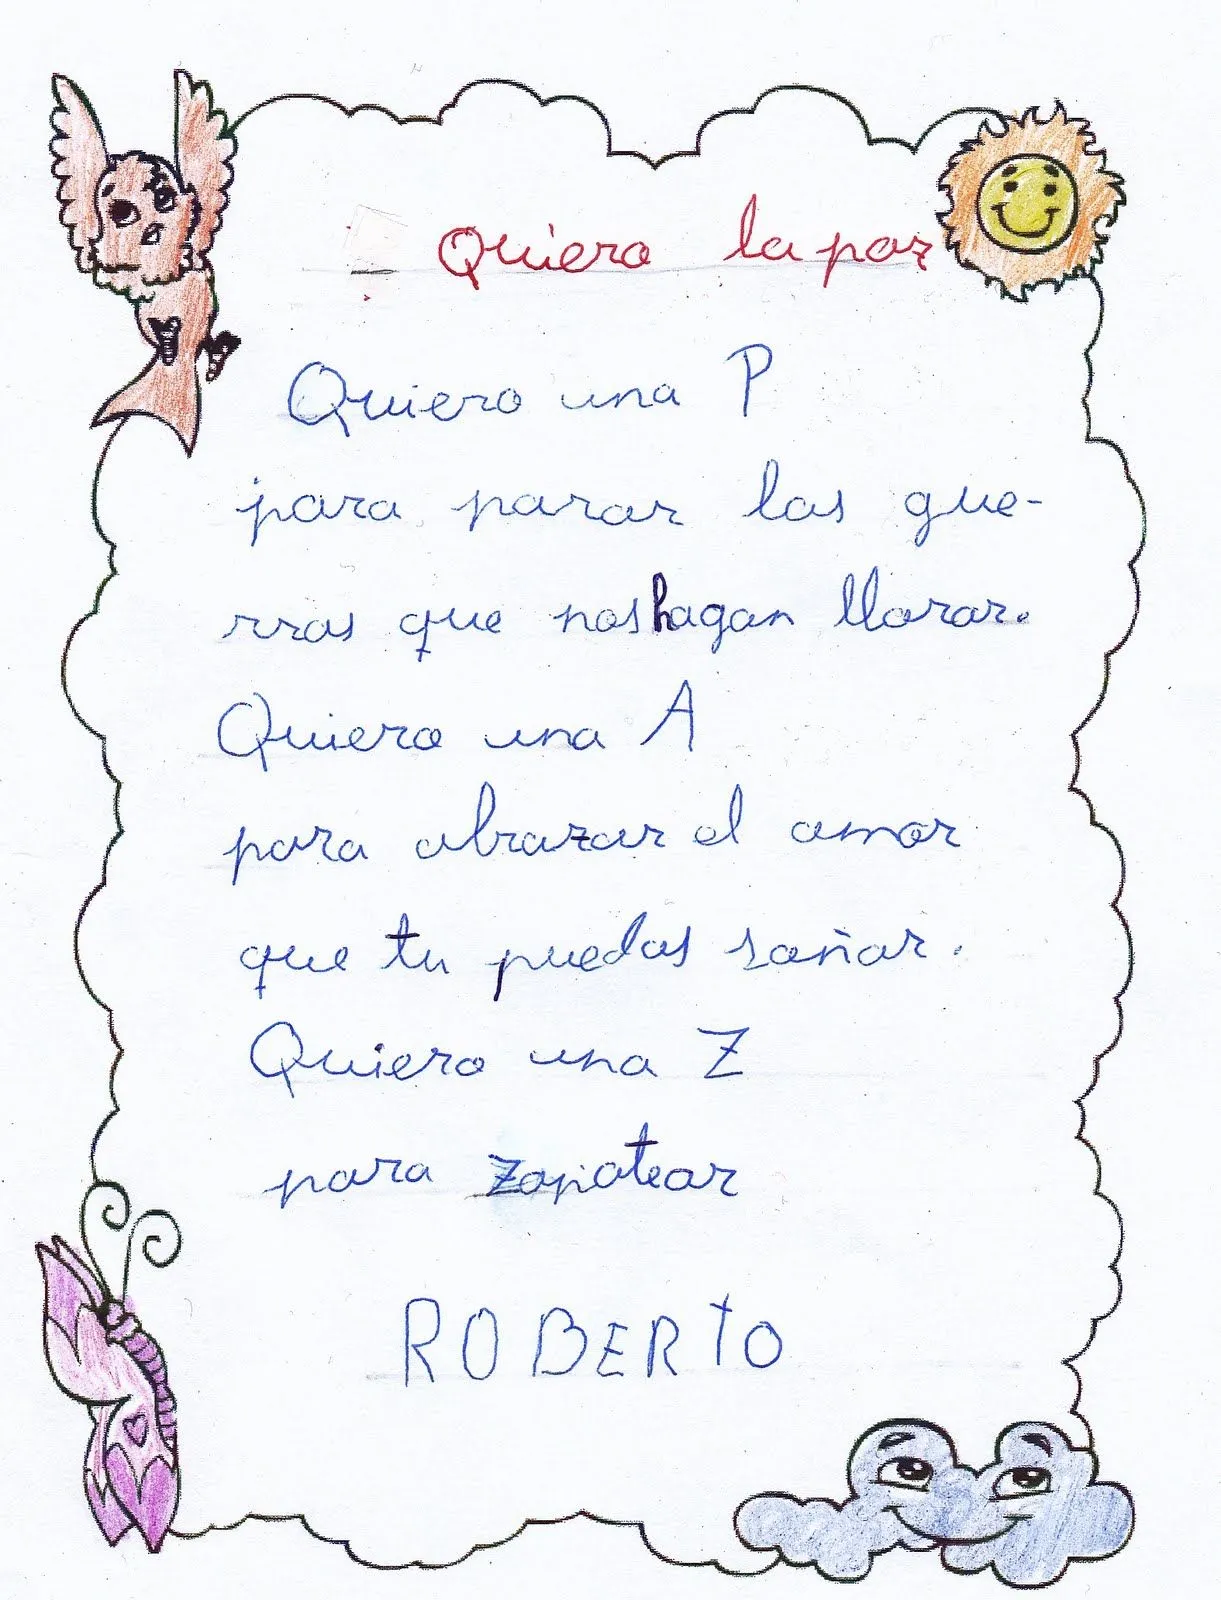 Quiero la paz
Quiero una P
para parar las gue-
rras que nos hagan llorar.
Quiero una A
para abrazar el amor
que tu puedas soñar.
Quiero una Z
para zapatear
ROBERTO